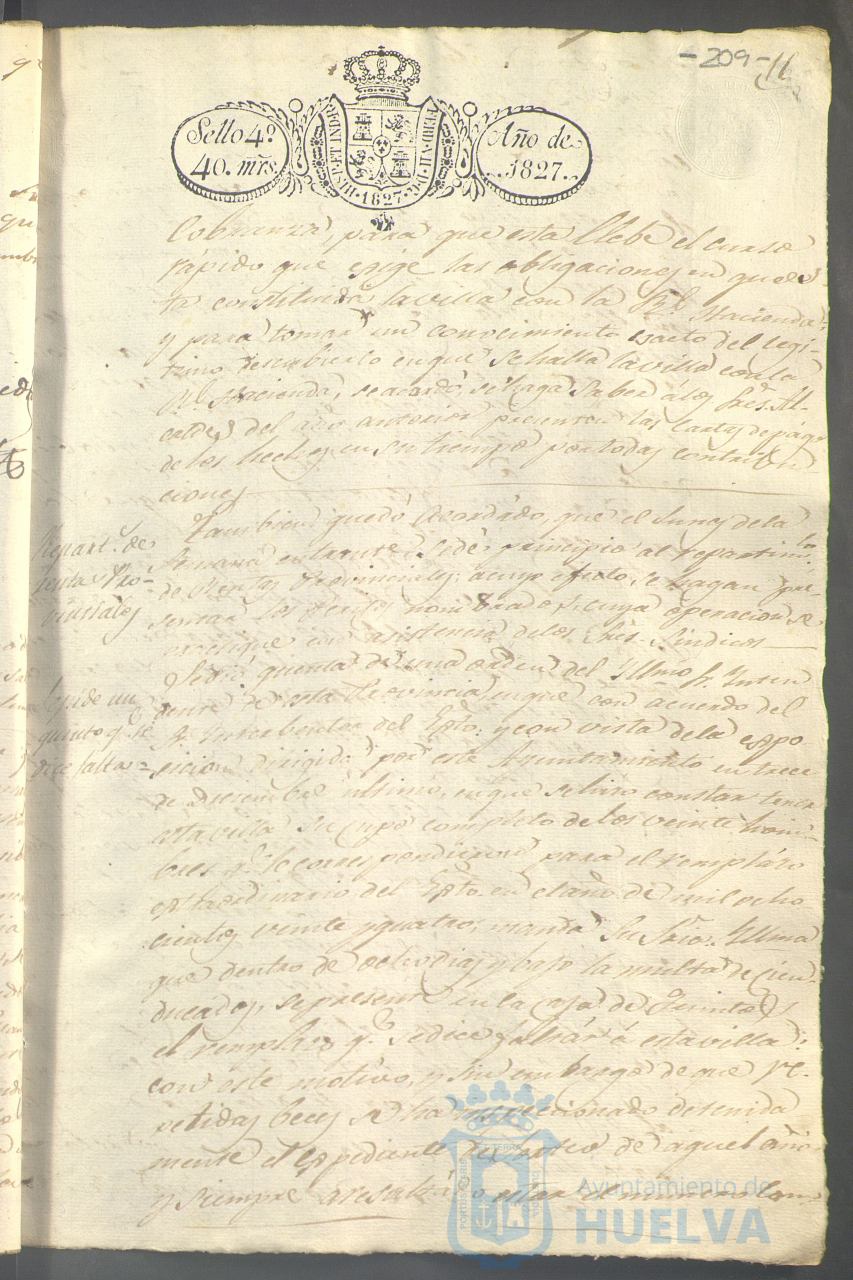 -209-
Sello 4º.
40. mrs.
FERD. VII. D. G. HISP. ET IND. R.
1827.
Año de
1827.
Cobranza, para que esta llebe el curso
rápido que exige las obligaciones en que es
ta constituida la villa con la Rl. Hacienda,
y para tomar un conocimiento exacto del legi-
timo descubierto en que se halla la villa con la
Rl. Hacienda, se acordó, se haga saber á los Sres. Al-
caldes del año anterior presenten las cartas de pago
de los hechos en su tiempo por todas contribu
ciones
Repart. de
renta Pro-
vinciales
Tambien quedó acordado, que el lunes de la
semana entrante, se dé principio al repartimto.
de Rentas Provinciales; a cuyo efecto, se hagan pre-
sentar los peritos nombrados, cuya operacion se
practique con asistencia de los Sres. Sindicos
Se pide un
quinto q. se
dice falta
Se dió quenta de una orden del Yllmo Sr. Inten
dente de esta Provincia, en que con acuerdo del
Sr. Interbentor del Exto. y con vista de la expo
sicion dirigida por este Ayuntamiento en trece
de Diciembre último, en que se hizo constar tener
esta villa su cupo completo de los veinte hom-
bres q. le correspondieron para el remplazo
extraordinario del Exto. en el año de mil ocho
cientos veinte y quatro; manda Su Sria. Yllma
que dentro de ocho dias y bajo la multa de cien
ducados, se presente en la caja de Quintos
el remplazo q. se dice faltar á esta villa:
con este motivo, y sin embargo de que re-
petidas beces se ha inspeccionado detenida
mente el expediente del sorteo de aquel año
y siempre a resultado estar
Ayuntamiento de
HUELVA